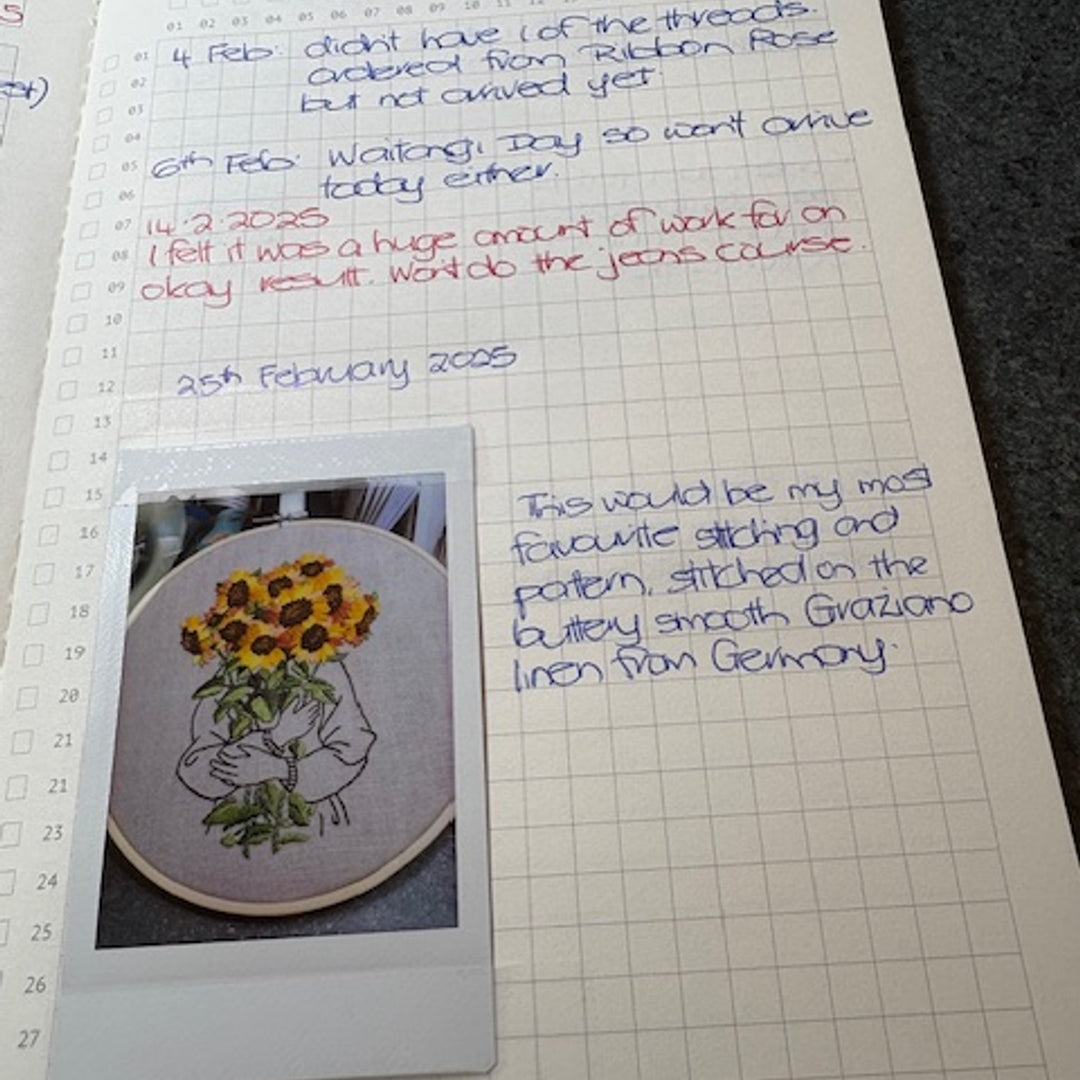 5
01 02 03 04 05 06 07 08 09 10 11 12
01 4 Feb: didn't have 1 of the threads.
02 ordered from Ribbon Rose
03 but not arrived yet.
04
05 6th Feb: Waitangi Day so won't arrive
06 today either.
07 14.2.2025
08 I felt it was a huge amount of work for an
09 okay result. Won't do the jeans course.
10
11
12 25th February 2025
13
14
15 This would be my most
16 favourite stitching and
17 pattern, stitched on the
18 buttery smooth Graziano
19 linen from Germany.
20
21
21
23
24
25
26
27